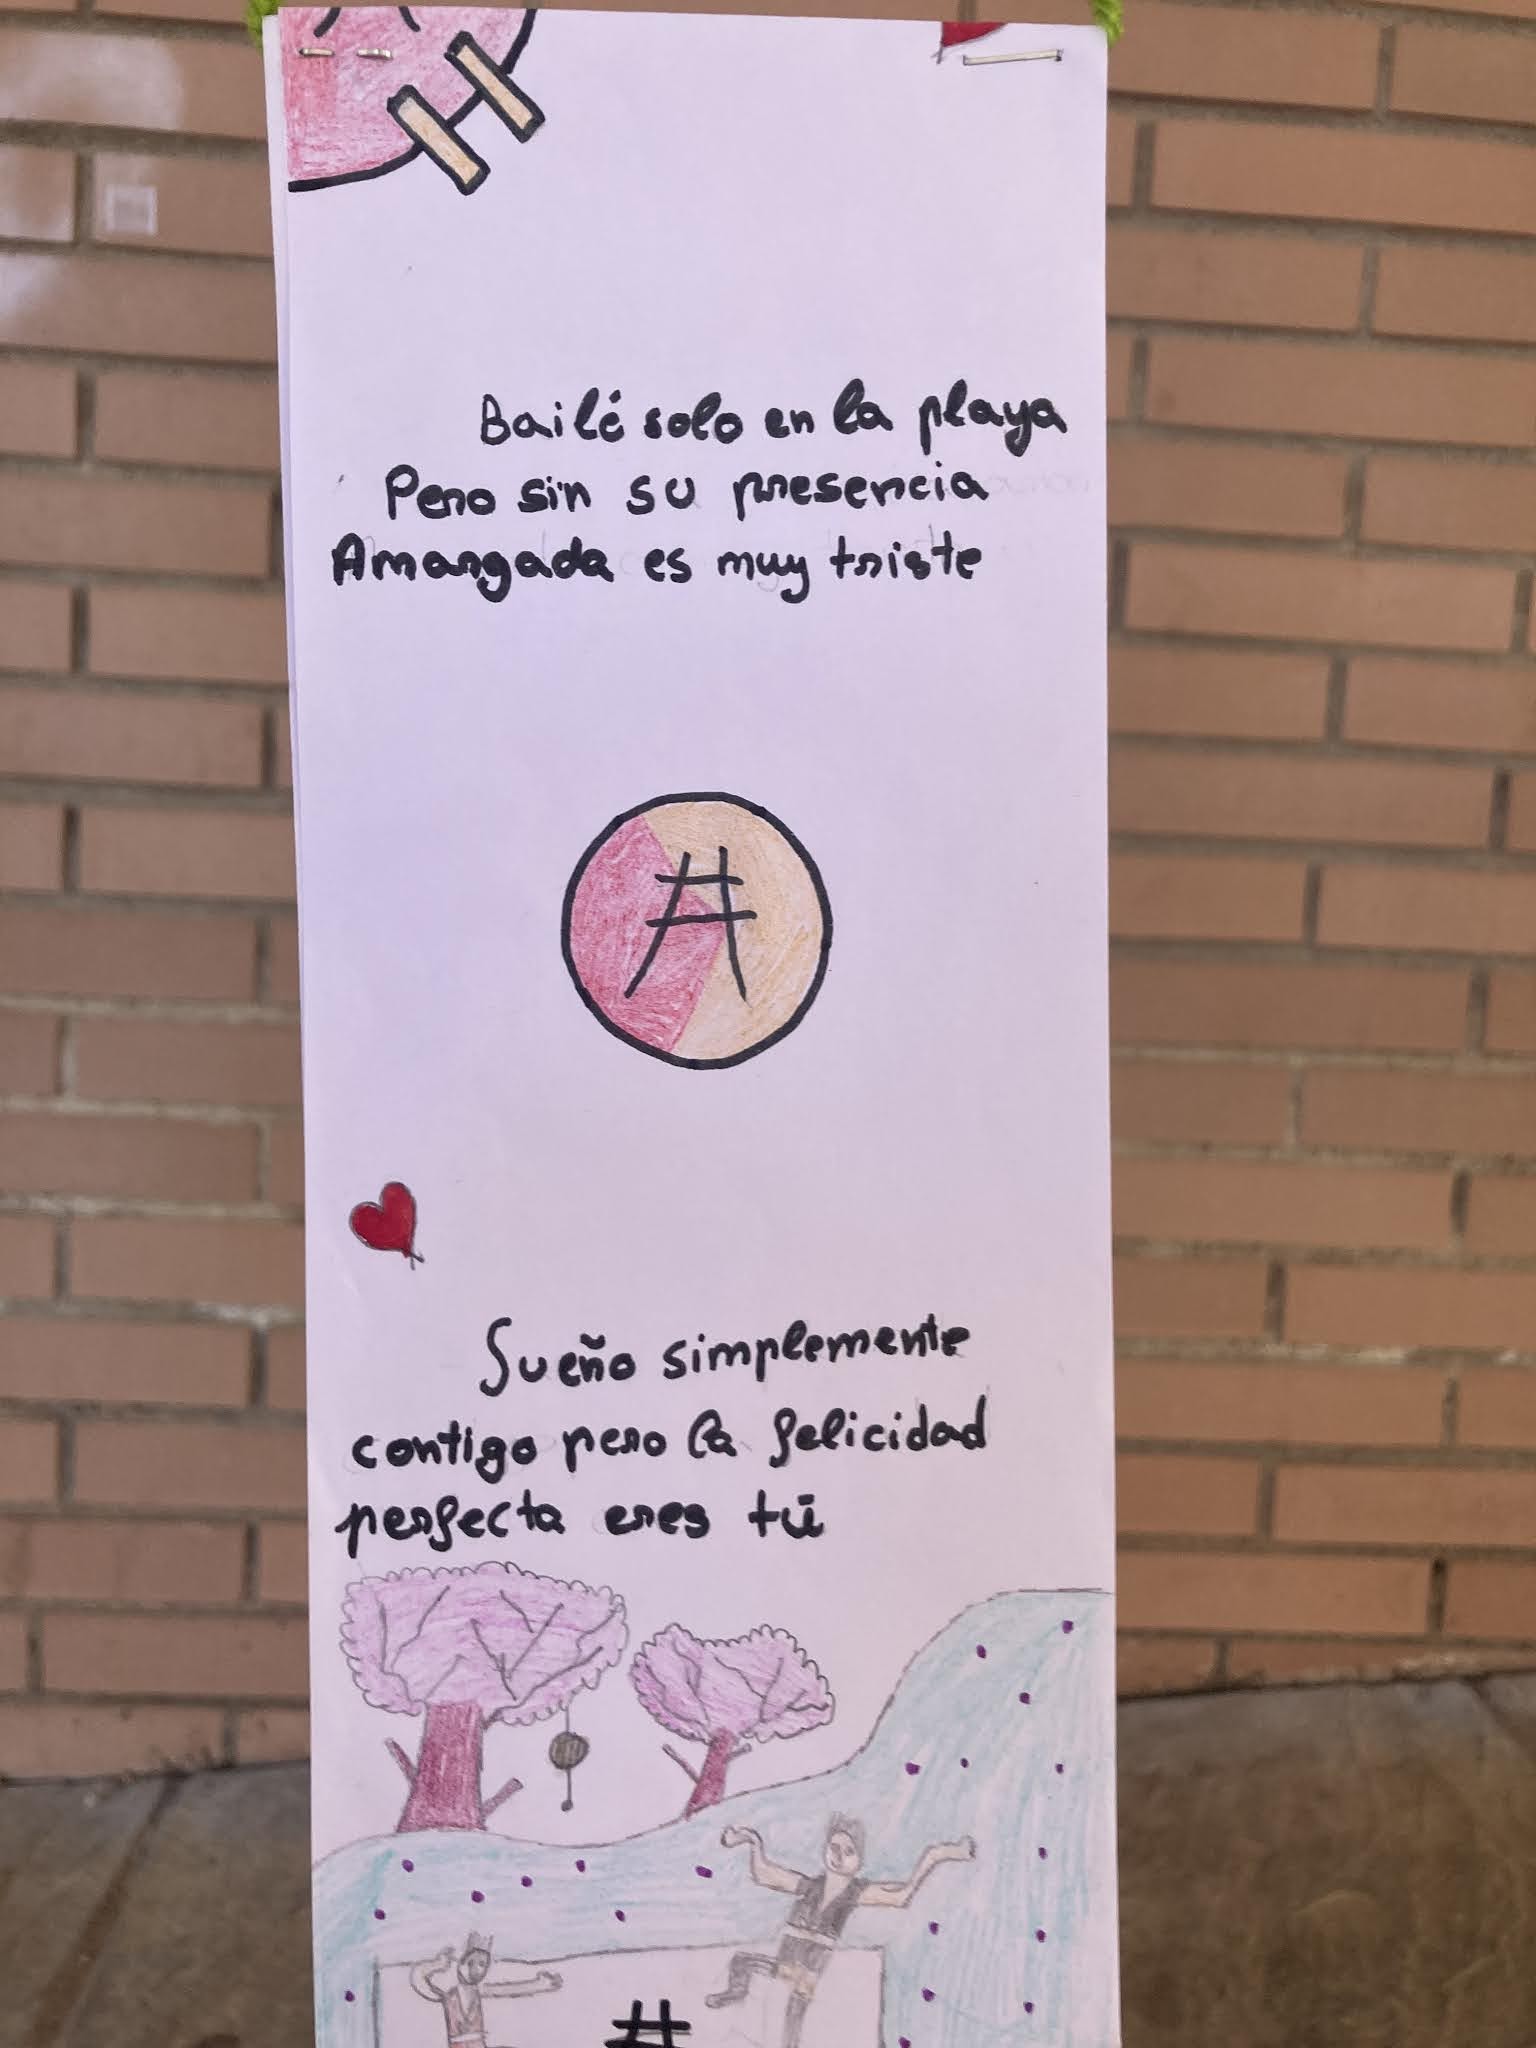 Bailé solo en la playa
Pero sin su presencia
Amargada es muy triste
Sueño simplemente
contigo pero la felicidad
perfecta eres tú